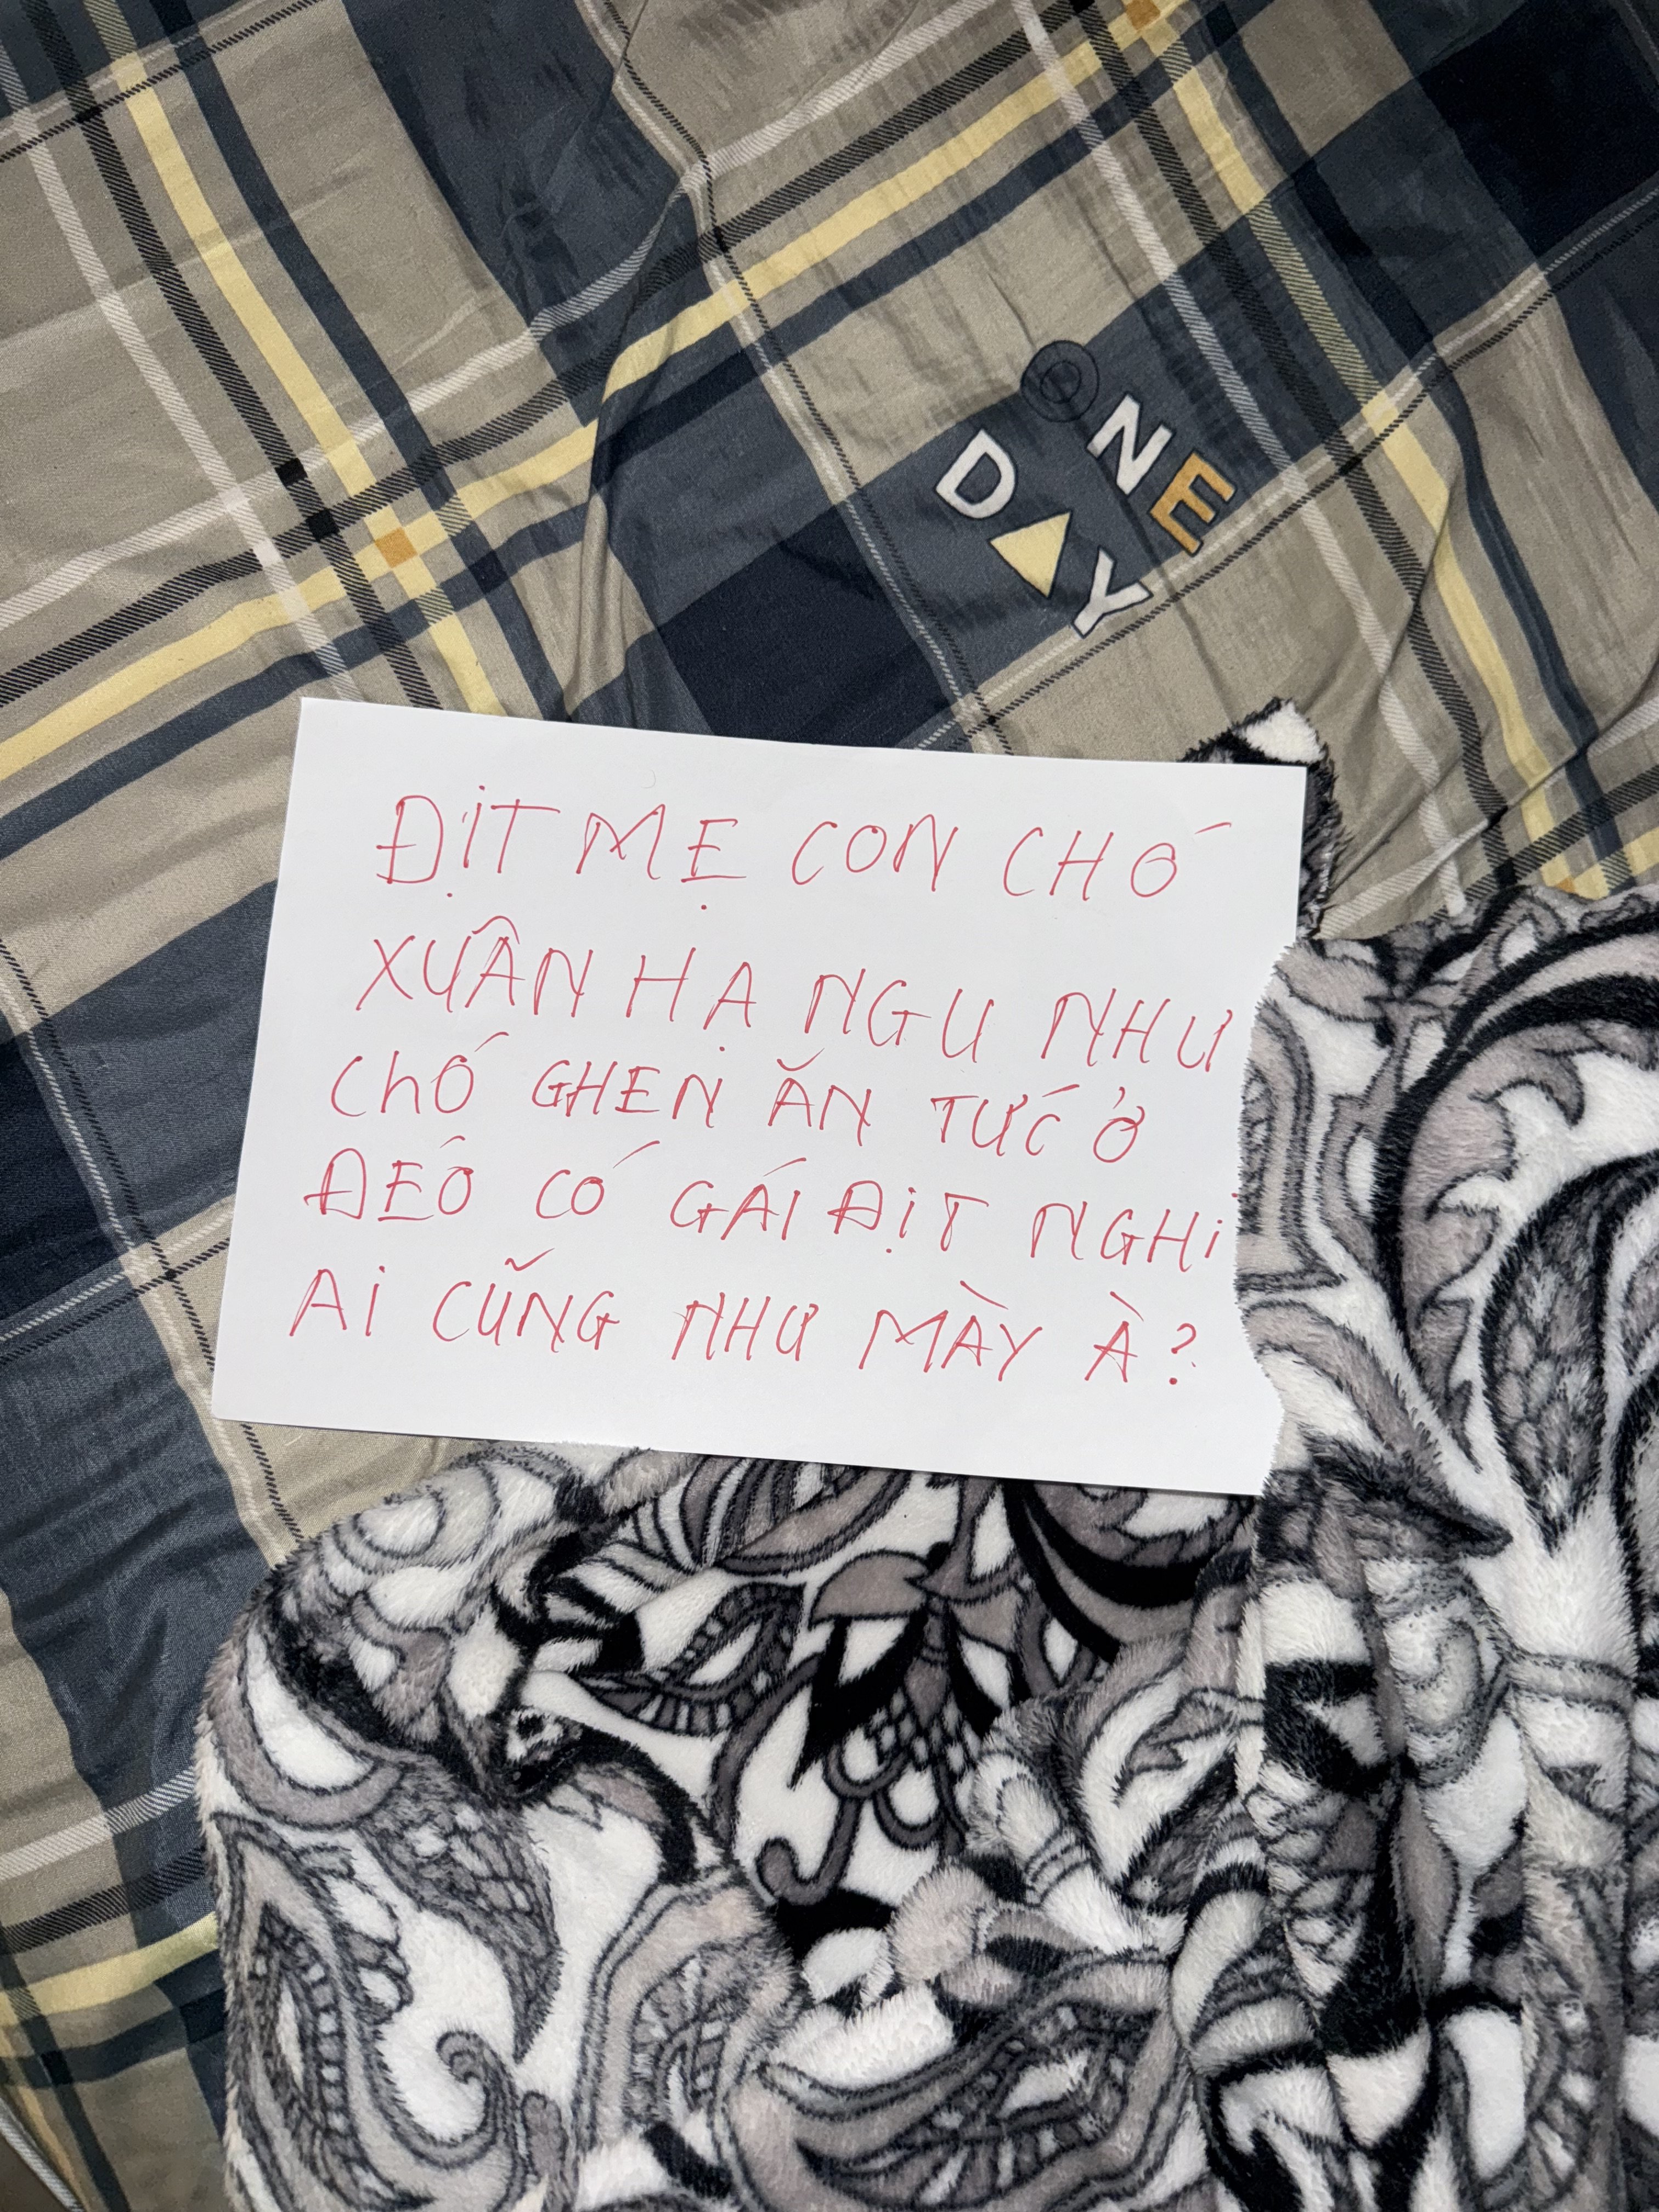 ONE
DAY
ĐỊT MẸ CON CHÓ
XUÂN HẠ NGU NHƯ
CHÓ GHEN ĂN TỨC Ở
ĐÉO CÓ GÁI ĐỊT NGHĨ
AI CŨNG NHƯ MÀY À?